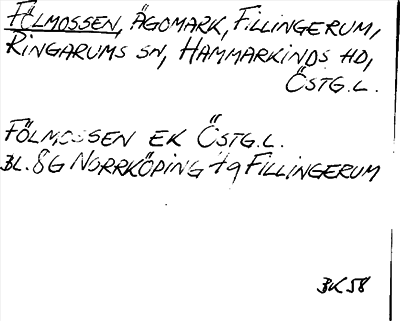 FÖLMOSSEN, ÄGOMARK, FILLINGERUM,
RINGARUMS SN, HAMMARKINDS HD,
ÖSTG.L.
FÖLMOSSEN EK ÖSTG.L.
BL. 8G NORRKÖPING 7g FILLINGERUM
BK58